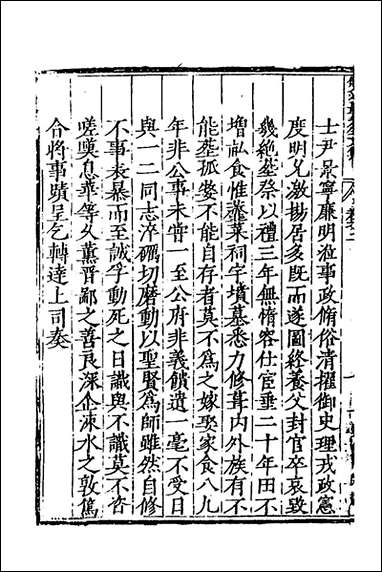 士尹景寧廉明涖事政脩俗清擢御史理戎政憲
度明允激揚居多既而遂圖終養父封官卒哀毀
幾絶塟祭以禮三年無惰容仕宦垂二十年田不
增畝食惟蔬菜祠宇墳墓悉力修葺内外族有不
能塟孤嫠不能自存者莫不為之嫁娶家食八九
年非公事未嘗一至公府非義饋遺一毫不受日
與一二同志淬礪切磨動以聖賢為師雖然自修
不事表暴而至誠孚動死之日識與不識莫不咨
嗟嘆息華等久薫晋鄙之善良深企涑水之敦篤
合將事蹟呈乞轉達上司奏